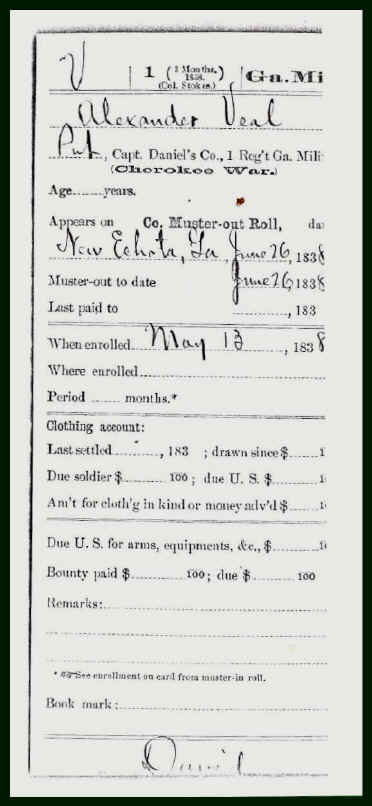 V | 1 (2 Months, 1838. (Col. Stokes.) | Ga. Mi
Alexander Veal
Pvt, Capt. Daniel's Co., 1 Reg't Ga. Mili
(Cherokee War.)
Age......years.
Appears on Co. Muster-out Roll, da
New Echota, Ga, June 26, 1838
Muster-out to date June 26, 1838
Last paid to ............, 183
When enrolled May 13, 1838
Where enrolled
Period ...... months.*
Clothing account:
Last settled............, 183 ; drawn since $......1
Due soldier $............100; due U. S. $......1
Am't for cloth'g in kind or money adv'd $......1
Due U. S. for arms, equipments, &c., $......1
Bounty paid $............100; due $............100
Remarks:
* See enrollment on card from muster-in roll.
Book mark: